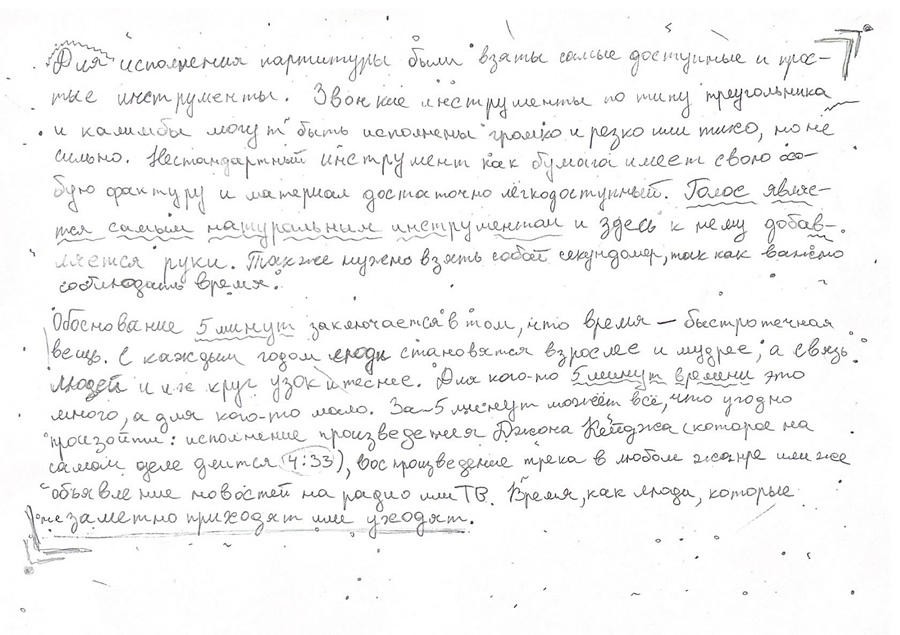 Для исполнения партитуры были взяты самые доступные и прос-
тые инструменты. Звонкие инструменты по типу треугольника
и калимбы могут быть исполнены громко и резко или тихо, но не
сильно. Нестандартный инструмент как бумага имеет свою осо-
бую фактуру и материал достаточно легкодоступный. Голос являе-
тся самым натуральным инструментом и здесь к нему добав-
ляется руки. Также нужно взять собой секундомер, так как важно
соблюдать время.
Обоснование 5 минут заключается в том, что время — быстротечная
вещь. С каждым годом люди становятся взрослее и мудрее, а связь
людей и их круг узок и теснее. Для кого-то 5 минут времени это
много, а для кого-то мало. За ~5 минут может всё, что угодно
произойти: исполнение произведения Джона Кейджа (которое на
самом деле длится 4:33), воспроизведение трека в любом жанре или же
объявление новостей на радио или ТВ. Время, как люди, которые
незаметно приходят или уходят.